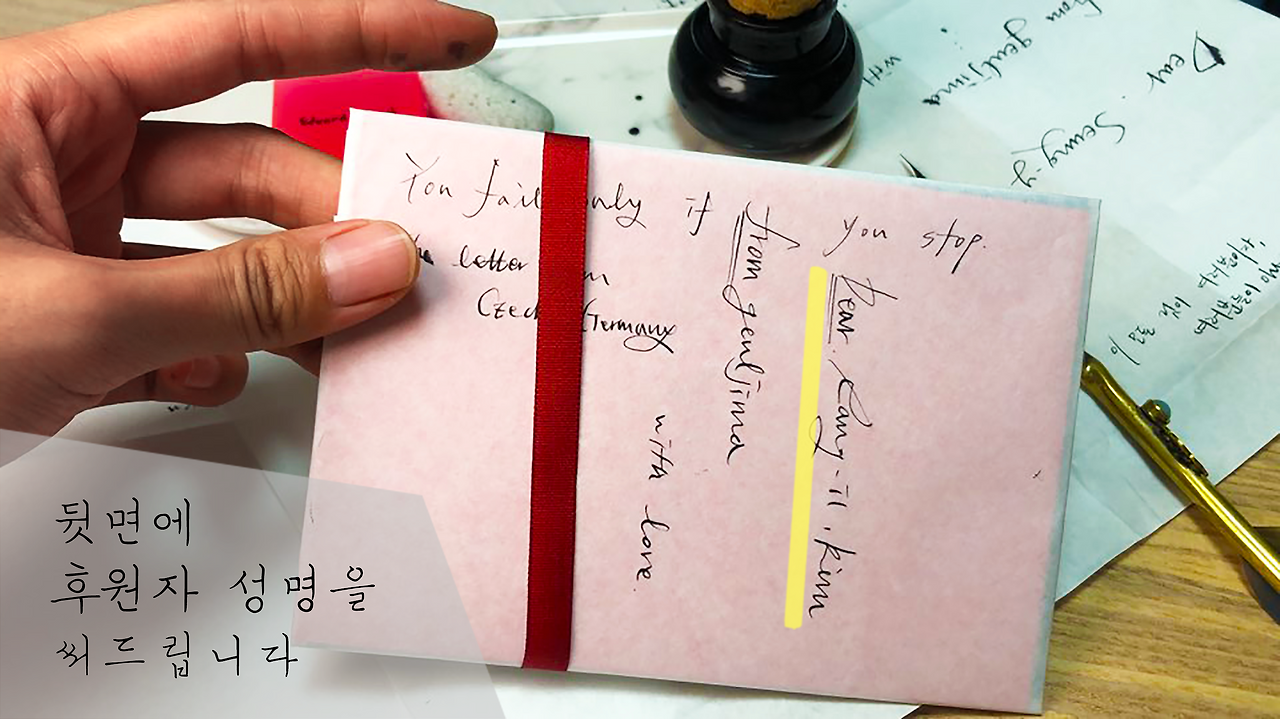 You fail only if you stop.
the letter from
Czech Germany
from geuljima
with love.
Dear. Cang-il. kim
Dear. Seung-y
from geuljima
with
뒷면에
후원자 성명을
써드립니다